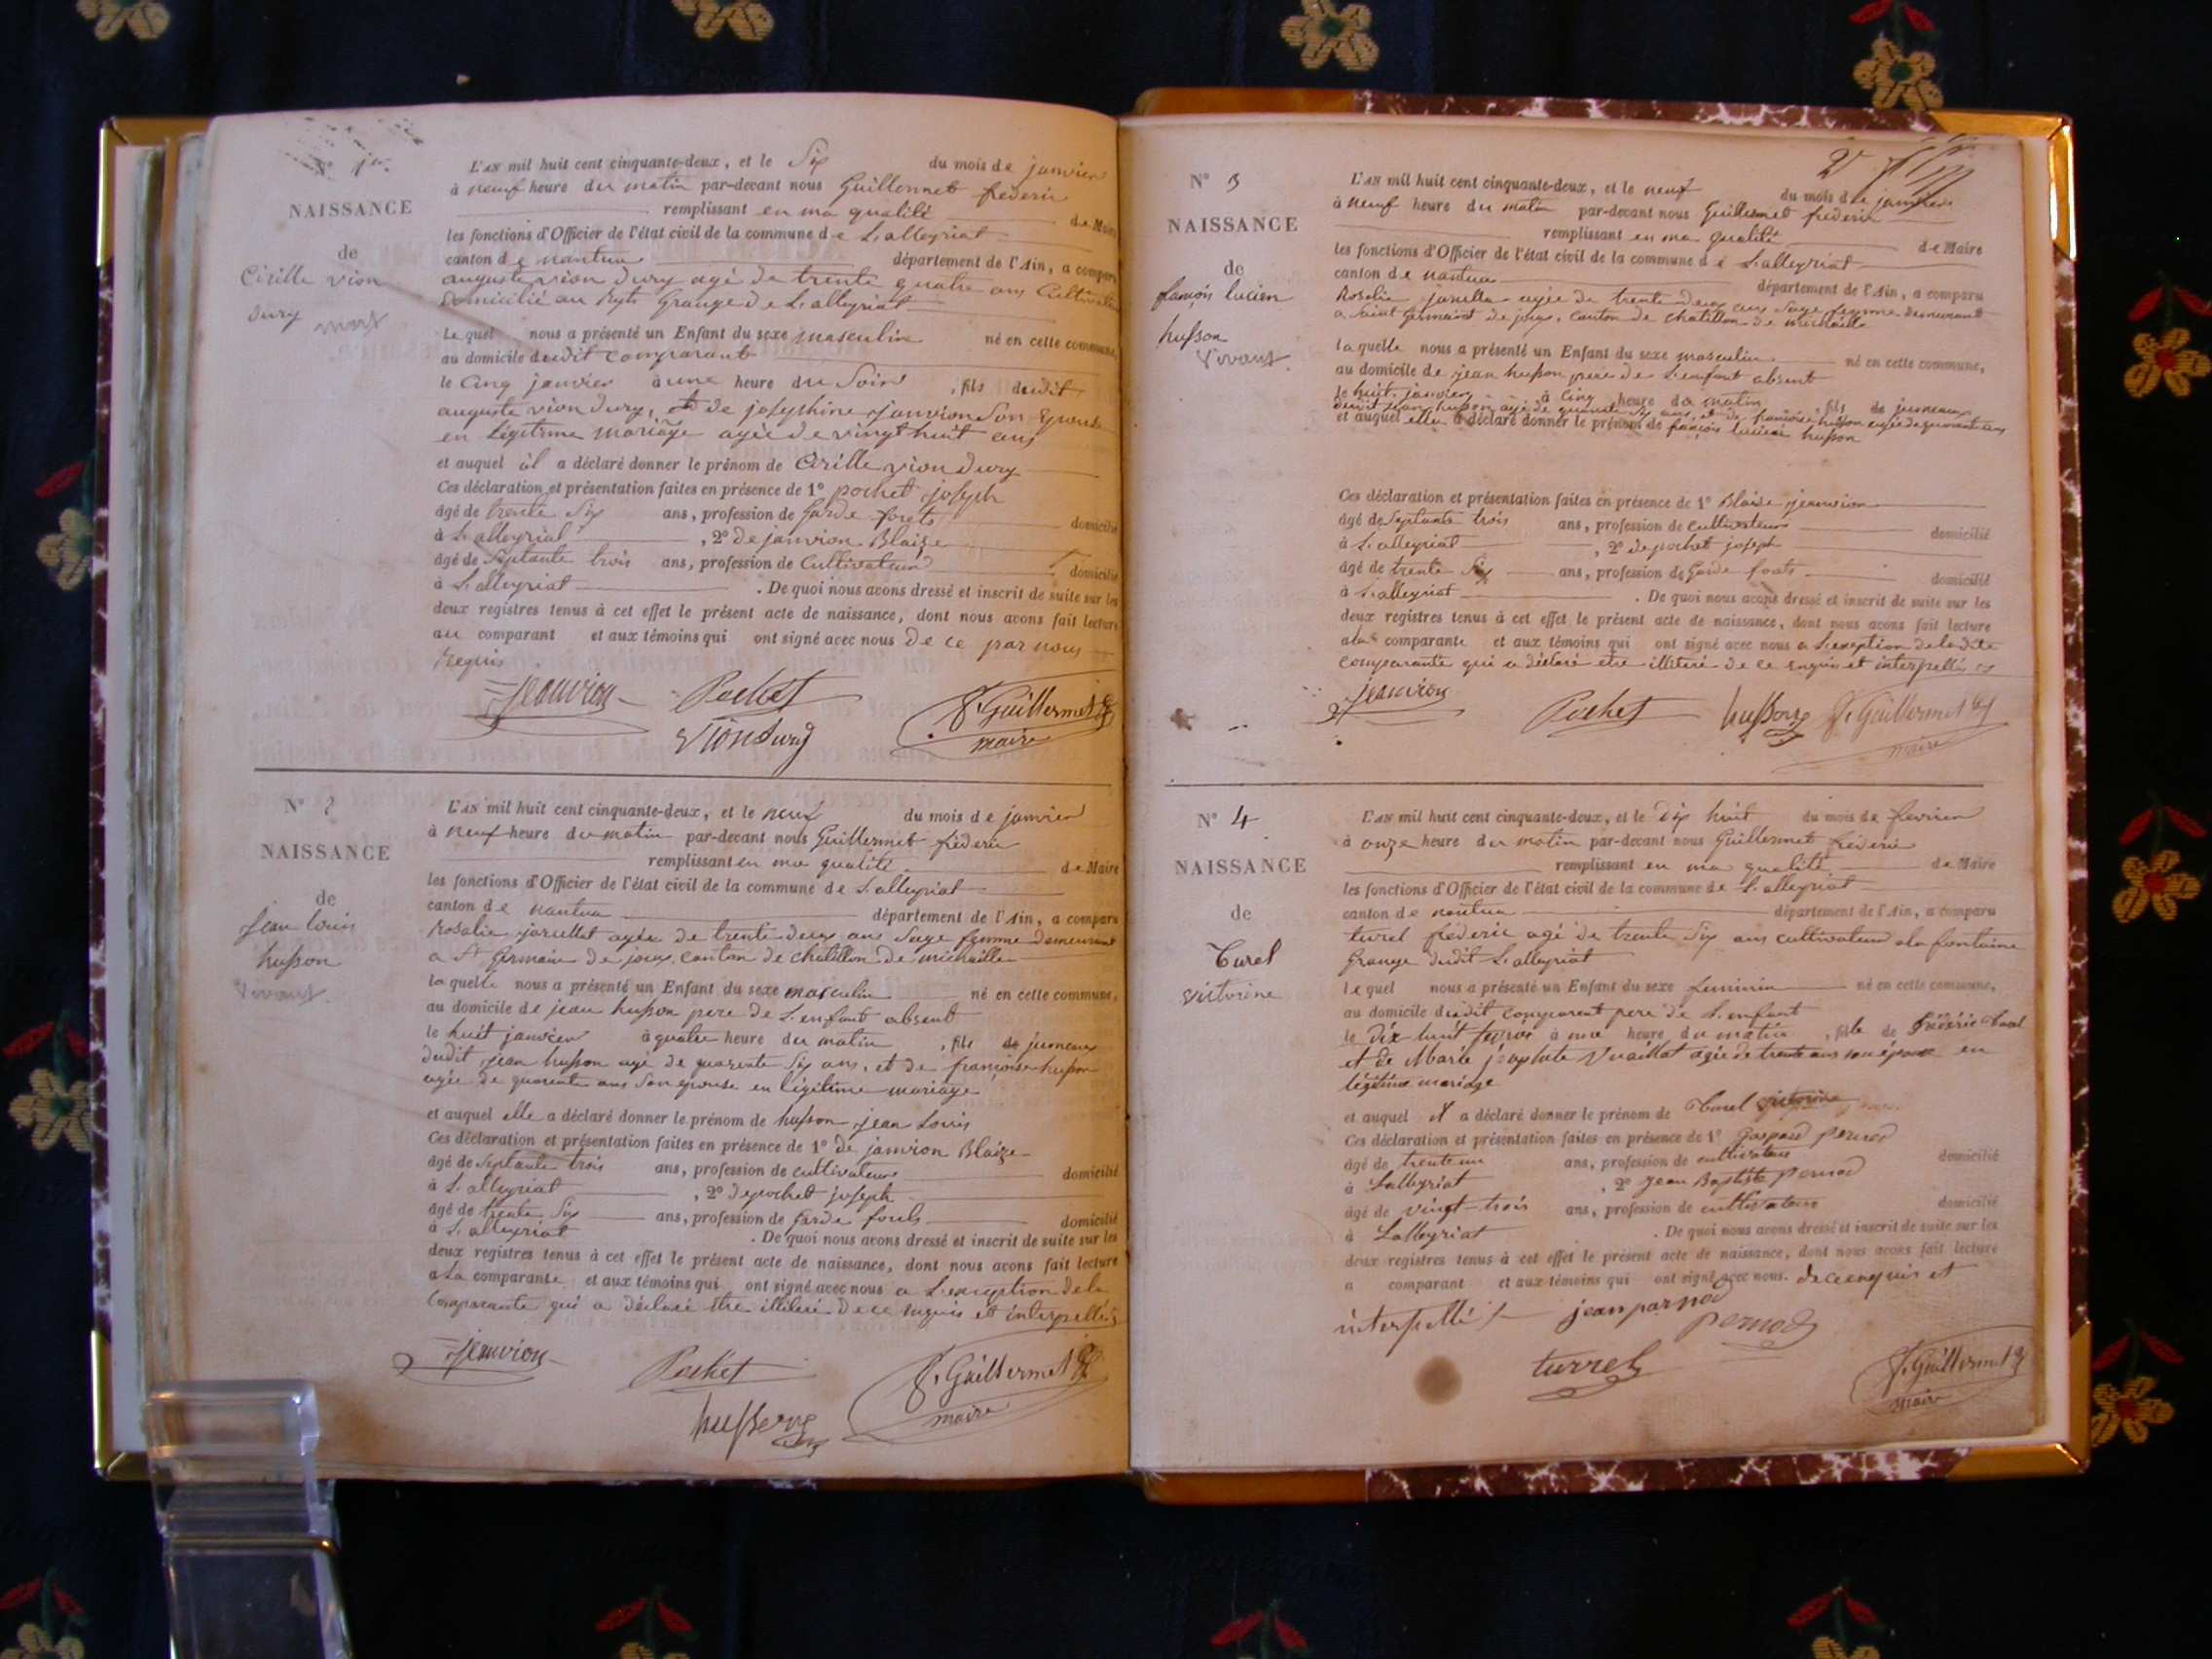 NAISSANCE
de
Cirille vion
dury mort
L'AN mil huit cent cinquante-deux, et le Six du mois de janvier
à neuf heure du matin par-devant nous Guillermet féderic
remplissant en ma qualité de Maire
les fonctions d'Officier de l'état civil de la commune de L'alleyriat
canton de nantua département de l'Ain, a comparu
auguste vion dury agé de trente quatre ans Cultivateur
domicilié au Grange de L'alleyriat
Lequel nous a présenté un Enfant du sexe masculin né en cette commune,
au domicile dudit comparant
le Cinq janvier à une heure du Soir , fils dudit
auguste vion dury, et de josephine janvion Son Epouse
en Légitime mariage agée de vingt huit ans
et auquel il a déclaré donner le prénom de Cirille vion dury
Ces déclaration et présentation faites en présence de 1° pochet joseph
âgé de trente Six ans, profession de Garde forets domicilié
à L'alleyriat , 2° de janvion Blaize
âgé de Septante trois ans, profession de Cultivateur domicilié
à L'alleyriat . De quoi nous avons dressé et inscrit de suite sur les
deux registres tenus à cet effet le présent acte de naissance, dont nous avons fait lecture
au comparant et aux témoins qui ont signé avec nous de ce par nous
Requis
jeanvion Pochet F. Guillermet
Viondury maire
N° 2
NAISSANCE
de
jean louis
husson
vivant.
L'AN mil huit cent cinquante-deux, et le neuf du mois de janvier
à neuf heure du matin par-devant nous Guillermet féderic
remplissant en ma qualité de Maire
les fonctions d'Officier de l'état civil de la commune de L'alleyriat
canton de nantua département de l'Ain, a comparu
Rosalie agée de trente deux ans Sage femme demeurant
a St Germain de joux, canton de chatillon de michaille
laquelle nous a présenté un Enfant du sexe masculin né en cette commune,
au domicile de jean husson pere de L'enfant absent
le huit janvier à quatre heure du matin , fils de jumeaux
dudit jean husson agé de quarente Six ans, et de françoise husson
agée de quarente ans Son epouse en légitime mariage
et auquel elle a déclaré donner le prénom de husson jean Louis
Ces déclaration et présentation faites en présence de 1° de janvion Blaize
âgé de Septante trois ans, profession de cultivateur domicilié
à L'alleyriat , 2° de pochet joseph
âgé de trente Six ans, profession de Garde forets domicilié
à L'alleyriat . De quoi nous avons dressé et inscrit de suite sur les
deux registres tenus à cet effet le présent acte de naissance, dont nous avons fait lecture
a La comparante et aux témoins qui ont signé avec nous a L'exception de la
Comparante qui a déclaré être illiteré de ce requis et interpellés
jeanvion Pochet F. Guillermet
maire
N° 3
NAISSANCE
de
françois lucien
husson
vivant.
L'AN mil huit cent cinquante-deux, et le neuf du mois de janvier
à neuf heure du matin par-devant nous Guillermet féderic
remplissant en ma qualité de Maire
les fonctions d'Officier de l'état civil de la commune de L'alleyriat
canton de nantua département de l'Ain, a comparu
Rosalie agée de trente deux ans Sage femme demeurant
a Saint Germain de joux, canton de chatillon de michaille
laquelle nous a présenté un Enfant du sexe masculin né en cette commune,
au domicile de jean husson pere de L'enfant absent
le huit janvier à Cinq heure du matin , fils de jumeaux
dudit jean husson agé de quarente Six ans, et de françoise husson agée de quarente ans
et auquel elle a déclaré donner le prénom de françois lucien husson
Ces déclaration et présentation faites en présence de 1° Blaise jeanvion
âgé de Septante trois ans, profession de cultivateur domicilié
à L'alleyriat , 2° de pochet joseph
âgé de trente Six ans, profession de Garde forets domicilié
à L'alleyriat . De quoi nous avons dressé et inscrit de suite sur les
deux registres tenus à cet effet le présent acte de naissance, dont nous avons fait lecture
a la comparante et aux témoins qui ont signé avec nous a L'exception de ladite
comparante qui a déclaré etre illiteré de ce requis et interpellés
jeanvion Pochet husson F. Guillermet
maire
N° 4
NAISSANCE
de
Turel
victorine
L'AN mil huit cent cinquante-deux, et le dix huit du mois de fevrier
à onze heure du matin par-devant nous Guillermet féderic
remplissant en ma qualité de Maire
les fonctions d'Officier de l'état civil de la commune de L'alleyriat
canton de nantua département de l'Ain, a comparu
turel féderic agé de trente Six ans cultivateur a la fontaine
Grange dudit L'alleyriat
lequel nous a présenté un Enfant du sexe feminin né en cette commune,
au domicile dudit comparent pere de L'enfant
le dix huit à une heure du matin , fille de Frédéric Turel
et de Marie agée de trente ans son épouse en
légitime mariage
et auquel il a déclaré donner le prénom de Turel victorine
Ces déclaration et présentation faites en présence de 1° Gaspard pernod
âgé de trente un ans, profession de cultivateur domicilié
à Lalleyriat , 2° Jean Baptiste pernod
âgé de vingt-trois ans, profession de cultivateur domicilié
à Lalleyriat . De quoi nous avons dressé et inscrit de suite sur les
deux registres tenus à cet effet le présent acte de naissance, dont nous avons fait lecture
a comparant et aux témoins qui ont signé avec nous. de ce enquis et
interpellé jean parnod pernod
turrel F. Guillermet
maire